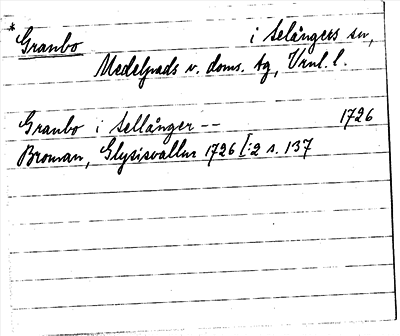 *Granbo i Selångers sn,
Medelpads v. doms. tg, Vrnl. l.
Granbo i Sellånger -- 1726
Broman, Glysisvallur 1726 [:2 s. 137